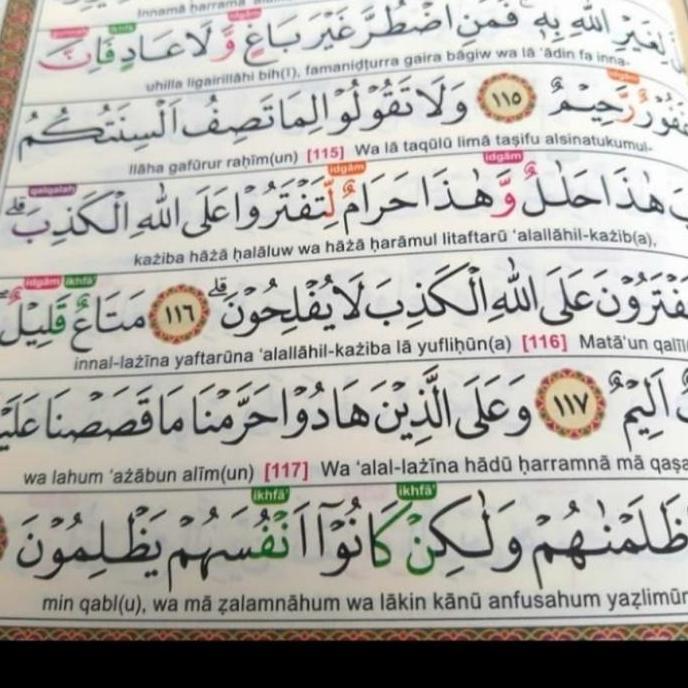 Innamā ḥarrama
idgām
لِغَيْرِ اللّٰهِ بِهٖ ۚ فَمَنِ اضْطُرَّ غَيْرَ بَاغٍ وَّلَا عَادٍ فَاِنَّ
uhilla ligairillāhi bih(ī), famaniḍṭurra gaira bāgiw wa lā ‘ādin fa inna-
idgām
غَفُوْرٌ رَّحِيْمٌ ١١٥ وَلَا تَقُوْلُوْا لِمَا تَصِفُ اَلْسِنَتُكُمُ
llāha gafūrur raḥīm(un) [115] Wa lā taqūlū limā taṣifu alsinatukumul-
qalqalah idgām idgām
هٰذَا حَلٰلٌ وَّهٰذَا حَرَامٌ لِّتَفْتَرُوْا عَلَى اللّٰهِ الْكَذِبَۗ
każiba hāżā ḥalāluw wa hāżā ḥarāmul litaftarū ‘alallāhil-każib(a),
يَفْتَرُوْنَ عَلَى اللّٰهِ الْكَذِبَ لَا يُفْلِحُوْنَۗ ١١٦ مَتَاعٌ قَلِيْلٌ
idgām ikhfā'
innal-lażīna yaftarūna ‘alallāhil-każiba lā yufliḥūn(a) [116] Matā‘un qalīl
اَلِيْمٌ ١١٧ وَعَلَى الَّذِيْنَ هَادُوْا حَرَّمْنَا مَا قَصَصْنَا
wa lahum ‘ażābun alīm(un) [117] Wa ‘alal-lażīna hādū ḥarramnā mā qaṣa
ikhfā' ikhfā'
ظَلَمْنٰهُمْ وَلٰكِنْ كَانُوْٓا اَنْفُسَهُمْ يَظْلِمُوْنَ
min qabl(u), wa mā ẓalamnāhum wa lākin kānū anfusahum yaẓlimūn